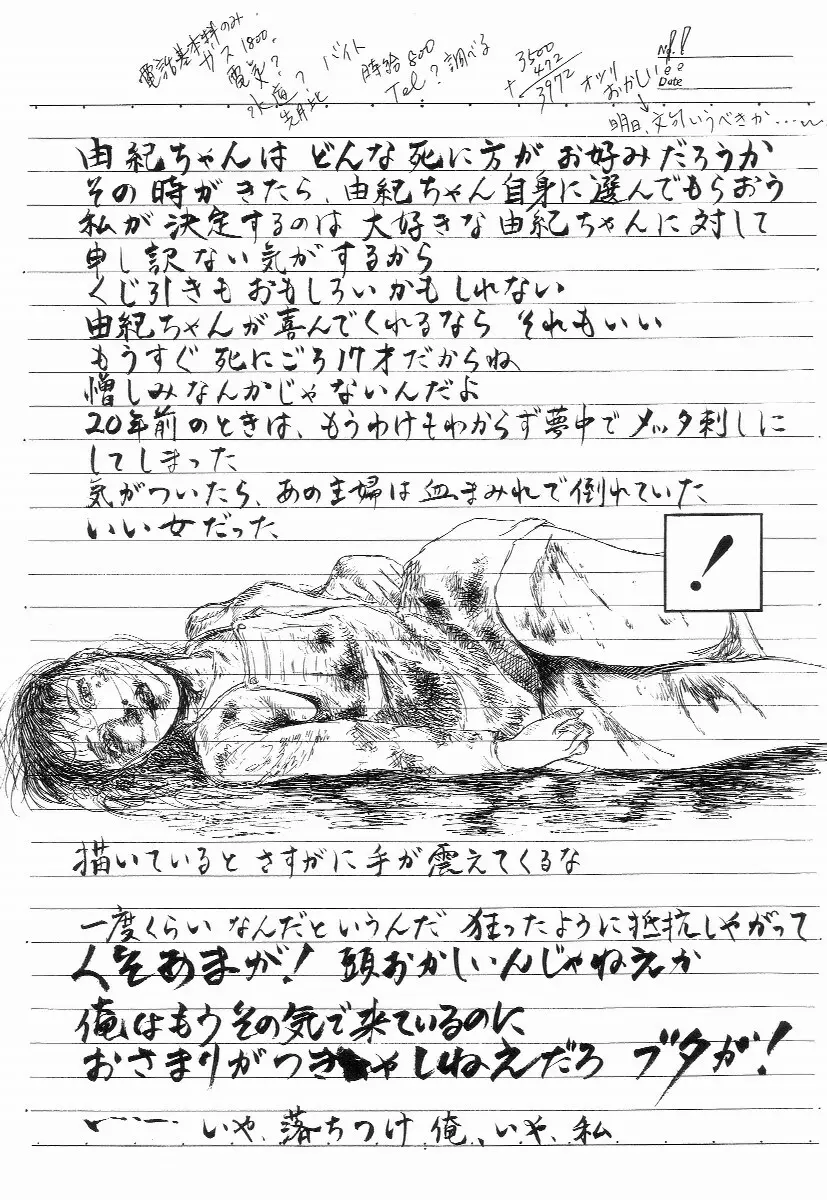 電話基本料のみ
ガス 1800.
電気?
水道?
先月比
バイト
時給 800
Tel? 調べる
3500
472
+
3972
オツリ
おかしい!!
No.
Date
↓
明日、文句いうべきか……
由紀ちゃんは どんな死に方が お好みだろうか
その時がきたら、由紀ちゃん自身に選んでもらおう
私が決定するのは 大好きな由紀ちゃんに対して
申し訳ない気がするから
くじ引きもおもしろいかもしれない
由紀ちゃんが喜んでくれるなら それもいい
もうすぐ 死にごろ17才だからね
憎しみなんかじゃないんだよ
20年前のときは、もうわけもわからず夢中で メッタ刺しに
してしまった
気がついたら、あの主婦は血まみれで倒れていた
いい女だった
!
描いていると さすがに手が震えてくるな
一度くらい なんだというんだ 狂ったように抵抗しやがって
くそあまが! 頭おかしいんじゃねえか
俺はもうその気で来ているのに
おさまりがつきゃしねえだろ ブタが!
……いや、落ちつけ 俺、いや、私